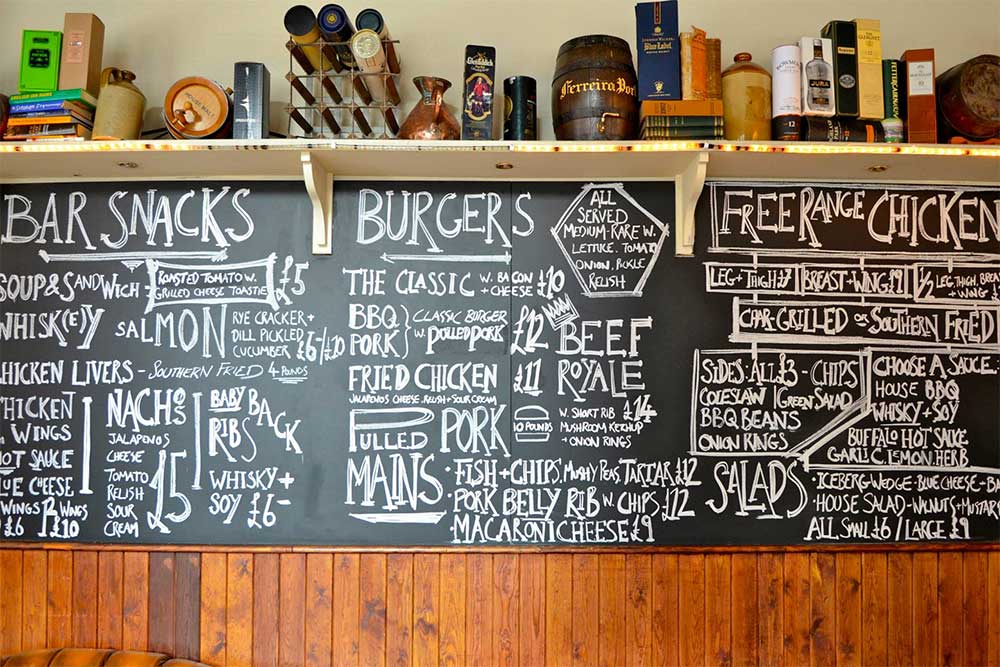 Glenfiddich
Ferreira Port
Blue Label
BOWMORE
JURA
12
BAR SNACKS
SOUP & SANDWICH - ROASTED TOMATO W. £5
GRILLED CHEESE TOASTIE
WHISK(E)Y SALMON RYE CRACKER +
DILL PICKLED
CUCUMBER £6-/£10
CHICKEN LIVERS - SOUTHERN FRIED 4 POUNDS
CHICKEN
WINGS
HOT SAUCE
BLUE CHEESE
WINGS 12 WINGS
£6 £10
NACHOS
JALAPENOS
CHEESE
TOMATO
RELISH
SOUR
CREAM
£5
BABY BACK
RIBS
WHISKY +
SOY £6-
BURGERS
THE CLASSIC W. BACON £10
+ CHEESE
BBQ
PORK
CLASSIC BURGER
W. PULLED PORK £12
FRIED CHICKEN £11
JALAPENOS CHEESE, RELISH + SOUR CREAM
PULLED PORK
10 POUNDS
ALL
SERVED
MEDIUM-RARE W.
LETTUCE, TOMATO
ONION, PICKLE
RELISH
BEEF
ROYALE
W. SHORT RIB £14
MUSHROOM KETCHUP
+ ONION RINGS
MAINS • FISH + CHIPS, MUSHY PEAS, TARTAR £12
• PORK BELLY RIB W. CHIPS £12
MACARONI CHEESE £9
FREE RANGE CHICKEN
LEG + THIGH £7 BREAST + WING £9 1/2 LEG, THIGH,
+ WING
CHAR-GRILLED OR SOUTHERN FRIED
SIDES • ALL £3 - CHIPS
COLESLAW GREEN SALAD
BBQ BEANS
ONION RINGS
CHOOSE A SAUCE •
HOUSE BBQ
WHISKY + SOY
BUFFALO HOT SAUCE
GARLIC, LEMON, HERB
SALADS
• ICEBERG WEDGE • BLUE CHEESE -
• HOUSE SALAD - WALNUTS +
ALL SMALL £6 / LARGE £9